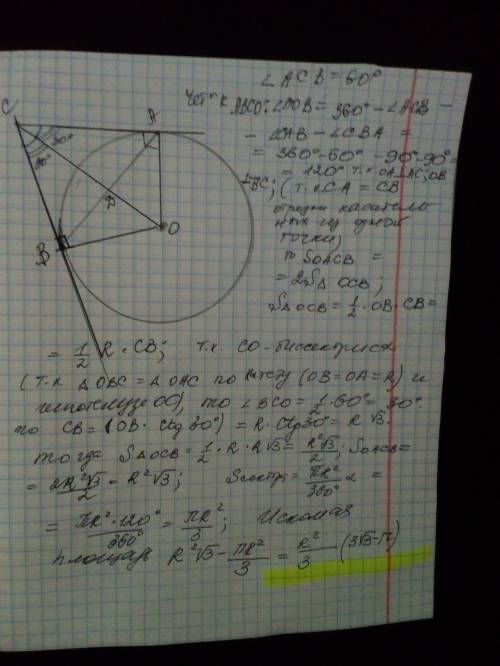 ∠ACB = 60°
ABCO: ∠AOB = 360° - ∠ACB -
- ∠CAB - ∠CBA =
= 360° - 60° - 90° - 90° =
= 120° т.к OA⊥AC; OB
⊥BC; (т.к CA = CB
отрезки касатель
ных из одной
точки,
то SOACB =
= 2S△ OCB;
S△ OCB = 1/2 · OB · CB =
C
A
B
O
= 1/2 R · CB; т.к. CO - биссектриса
(т.к △ OBC = △ OAC по катету (OB = OA = R) и
гипотенузе OC), то ∠BCO = 1/2 · 60° = 30°
то CB = (OB · Ctg 30°) = R · Ctg 30° = R √3.
тогда S△OCB = 1/2 · R · R√3 = R²√3/2; SOACB =
= 2R²√3/2 = R²√3; Sсектр = πR²/360° α =
= πR² · 120°/360° = πR²/3; Искомая
площадь R²√3 - πR²/3 = R²/3 (3√3 - π)